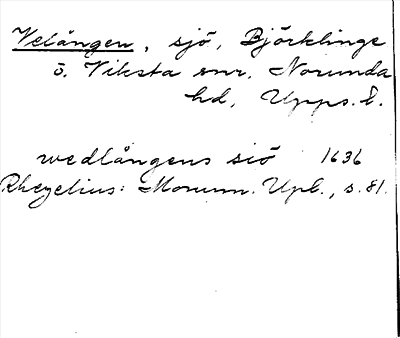 Velången, sjö, Björklinge
o. Viksta snr, Norunda
hd, Upps. l.
wedlångens siö 1636
Rhezelius: Monum. Upl., s. 81.